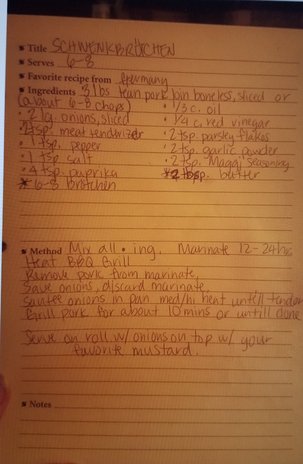 Title SCHWENKBRÖTCHEN
Serves 6-8
Favorite recipe from Germany
Ingredients 3 lbs lean pork loin boneless, sliced or
(about 6-8 chops) · 1/3 c. oil
· 2 lg onions, sliced · 1/4 c. red vinegar
· 2 tsp. meat tenderizer · 2 tsp. parsley flakes
· 1 tsp. pepper · 2 tsp. garlic powder
· 1 tsp salt · 2 tsp. Maggi seasoning
· 4 tsp. paprika * 2 tbsp. butter
* 6-8 brötchen
Method Mix all · ing. Marinate 12-24 hrs
Heat BBQ Grill
Remove pork from marinate,
Save onions, discard marinate,
Sautee onions in pan med/hi heat until tender
Grill pork for about 10 mins or untill done
Serve on roll w/ onions on top w/ your
favorite mustard.
Notes